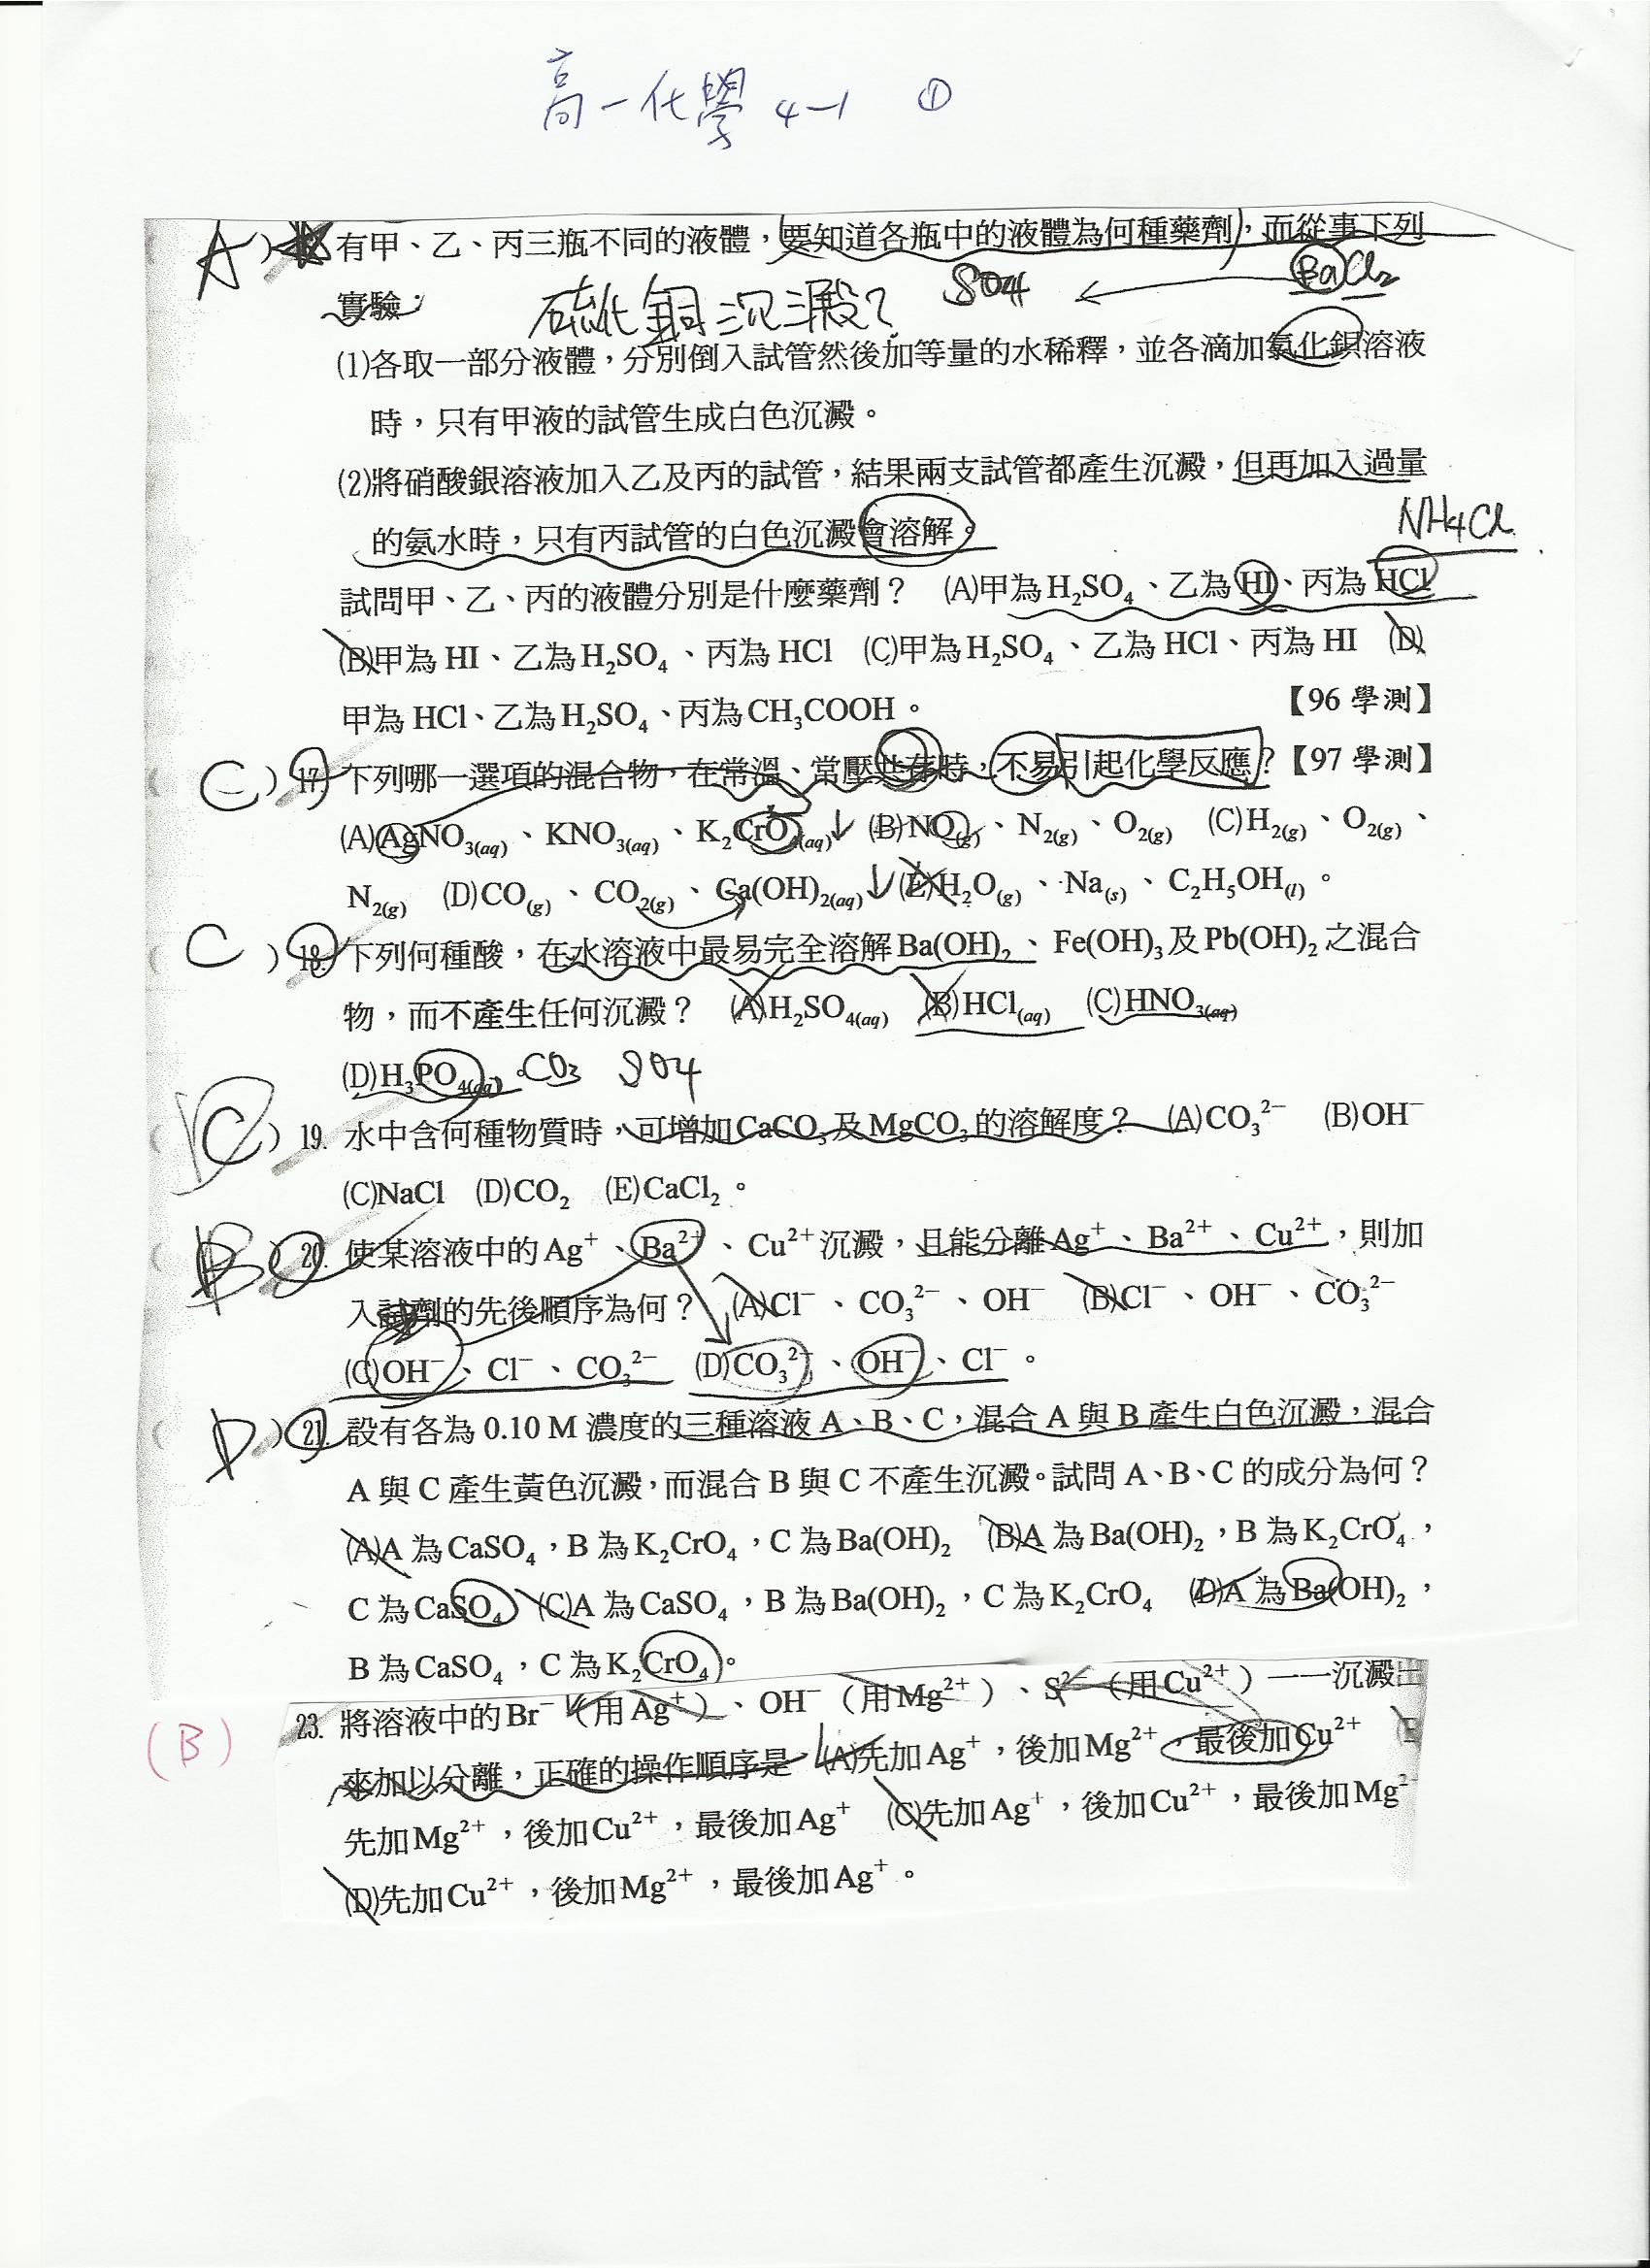 高一化學 4-1 ①
A ) 有甲、乙、丙三瓶不同的液體，要知道各瓶中的液體為何種藥劑，而從事下列
實驗：
硫化銅沉澱？ SO4 BaCl2
(1)各取一部分液體，分別倒入試管然後加等量的水稀釋，並各滴加氯化鋇溶液
時，只有甲液的試管生成白色沉澱。
(2)將硝酸銀溶液加入乙及丙的試管，結果兩支試管都產生沉澱，但再加入過量
的氨水時，只有丙試管的白色沉澱會溶解。
NH4Cl
試問甲、乙、丙的液體分別是什麼藥劑？ (A)甲為H₂SO₄、乙為HI、丙為HCl
(B)甲為HI、乙為H₂SO₄、丙為HCl (C)甲為H₂SO₄、乙為HCl、丙為HI (D)
甲為HCl、乙為H₂SO₄、丙為CH₃COOH。 【96學測】
C ) 17. 下列哪一選項的混合物，在常溫、常壓共存時，不易引起化學反應？【97學測】
(A)AgNO₃(aq)、KNO₃(aq)、K₂CrO₄(aq)↓ (B)NO(g)、N₂(g)、O₂(g) (C)H₂(g)、O₂(g)、
N₂(g) (D)CO(g)、CO₂(g)、Ca(OH)₂(aq)↓ (E)H₂O(g)、Na(s)、C₂H₅OH(l)。
( C ) 18. 下列何種酸，在水溶液中最易完全溶解Ba(OH)₂、Fe(OH)₃及Pb(OH)₂之混合
物，而不產生任何沉澱？ (A)H₂SO₄(aq) (B)HCl(aq) (C)HNO₃(aq)
(D)H₃PO₄(aq)。 CO3 SO4
( C ) 19. 水中含何種物質時，可增加CaCO₃及MgCO₃的溶解度？ (A)CO₃²⁻ (B)OH⁻
(C)NaCl (D)CO₂ (E)CaCl₂。
( B ) 20. 使某溶液中的Ag⁺、Ba²⁺、Cu²⁺沉澱，且能分離Ag⁺、Ba²⁺、Cu²⁺，則加
入試劑的先後順序為何？ (A)Cl⁻、CO₃²⁻、OH⁻ (B)Cl⁻、OH⁻、CO₃²⁻
(C)OH⁻、Cl⁻、CO₃²⁻ (D)CO₃²⁻、OH⁻、Cl⁻。
( D ) 21. 設有各為0.10 M濃度的三種溶液A、B、C，混合A與B產生白色沉澱，混合
A與C產生黃色沉澱，而混合B與C不產生沉澱。試問A、B、C的成分為何？
(A)A為CaSO₄，B為K₂CrO₄，C為Ba(OH)₂ (B)A為Ba(OH)₂，B為K₂CrO₄，
C為CaSO₄ (C)A為CaSO₄，B為Ba(OH)₂，C為K₂CrO₄ (D)A為Ba(OH)₂，
B為CaSO₄，C為K₂CrO₄。
(B) 23. 將溶液中的Br⁻（用Ag⁺）、OH⁻（用Mg²⁺）、S²⁻（用Cu²⁺）一一沉澱出
來加以分離，正確的操作順序是 (A)先加Ag⁺，後加Mg²⁺，最後加Cu²⁺
先加Mg²⁺，後加Cu²⁺，最後加Ag⁺ (C)先加Ag⁺，後加Cu²⁺，最後加Mg²
(D)先加Cu²⁺，後加Mg²⁺，最後加Ag⁺。